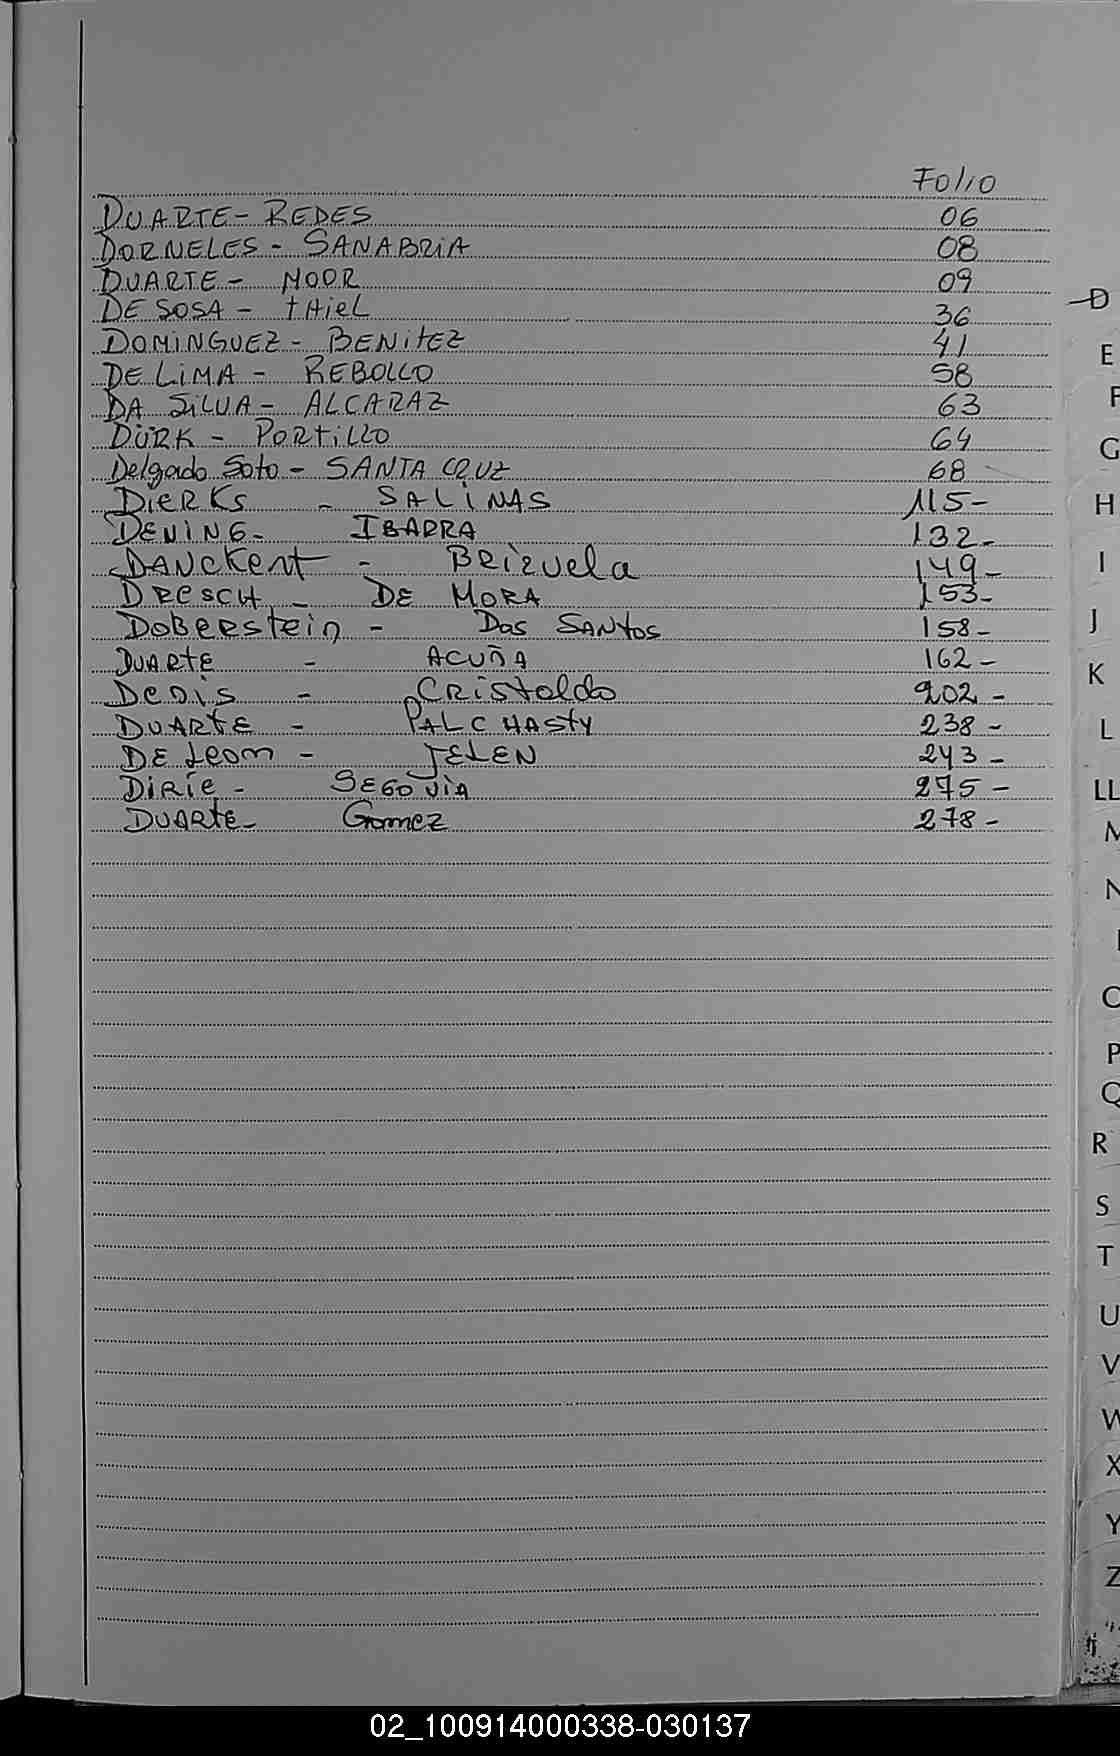 Folio
DUARTE - REDES 06
DORNELES - SANABRiA 08
DUARTE - MOOR 09
DE SOSA - tHieL 36
DOMiNGUEZ - BENitEZ 41
DE LiMA - REBOLLO 58
DA SiLVA - ALCARAZ 63
DÜRK - PORTiLLO 64
Delgado Soto - SANTA CRUZ 68
DieRKs - SALiNAS 115-
DENiNG - IBARRA 132-
DANcKert - BRizuela 149-
DREscH - DE MORA 153-
DoBerstein - Dos SANtos 158-
DUARtE - ACUÑA 162-
DEnis - CRistaldo 202-
DUARtE - PALCHAsty 238-
DE Leom - JELEN 243-
DiRie - SEGOViA 275-
DUARte - Gomez 278-
D
E
F
G
H
I
J
K
L
LL
M
N
O
P
Q
R
S
T
U
V
W
X
Y
Z
02_100914000338-030137